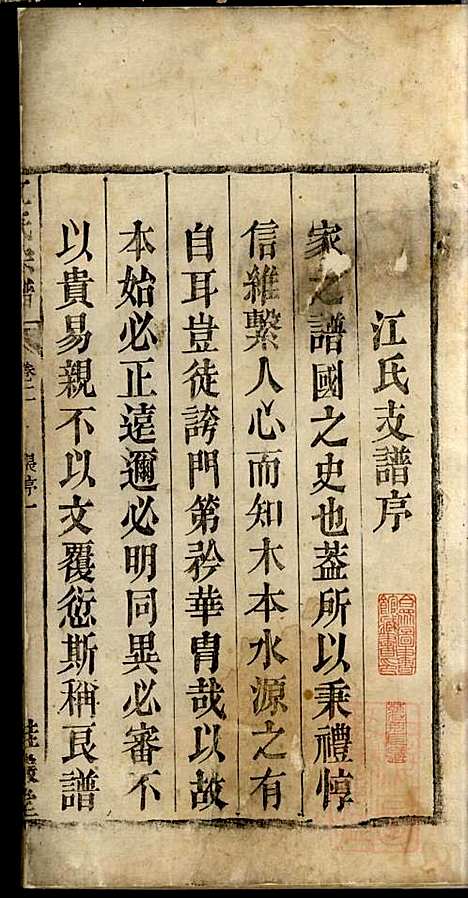 江氏支譜序
家之譜國之史也葢所以秉禮惇
信維繫人心而知木本水源之有
自耳豈徒誇門第矜華胄哉以故
本始必正遠邇必明同異必審不
以貴易親不以文覆愆斯稱良譜